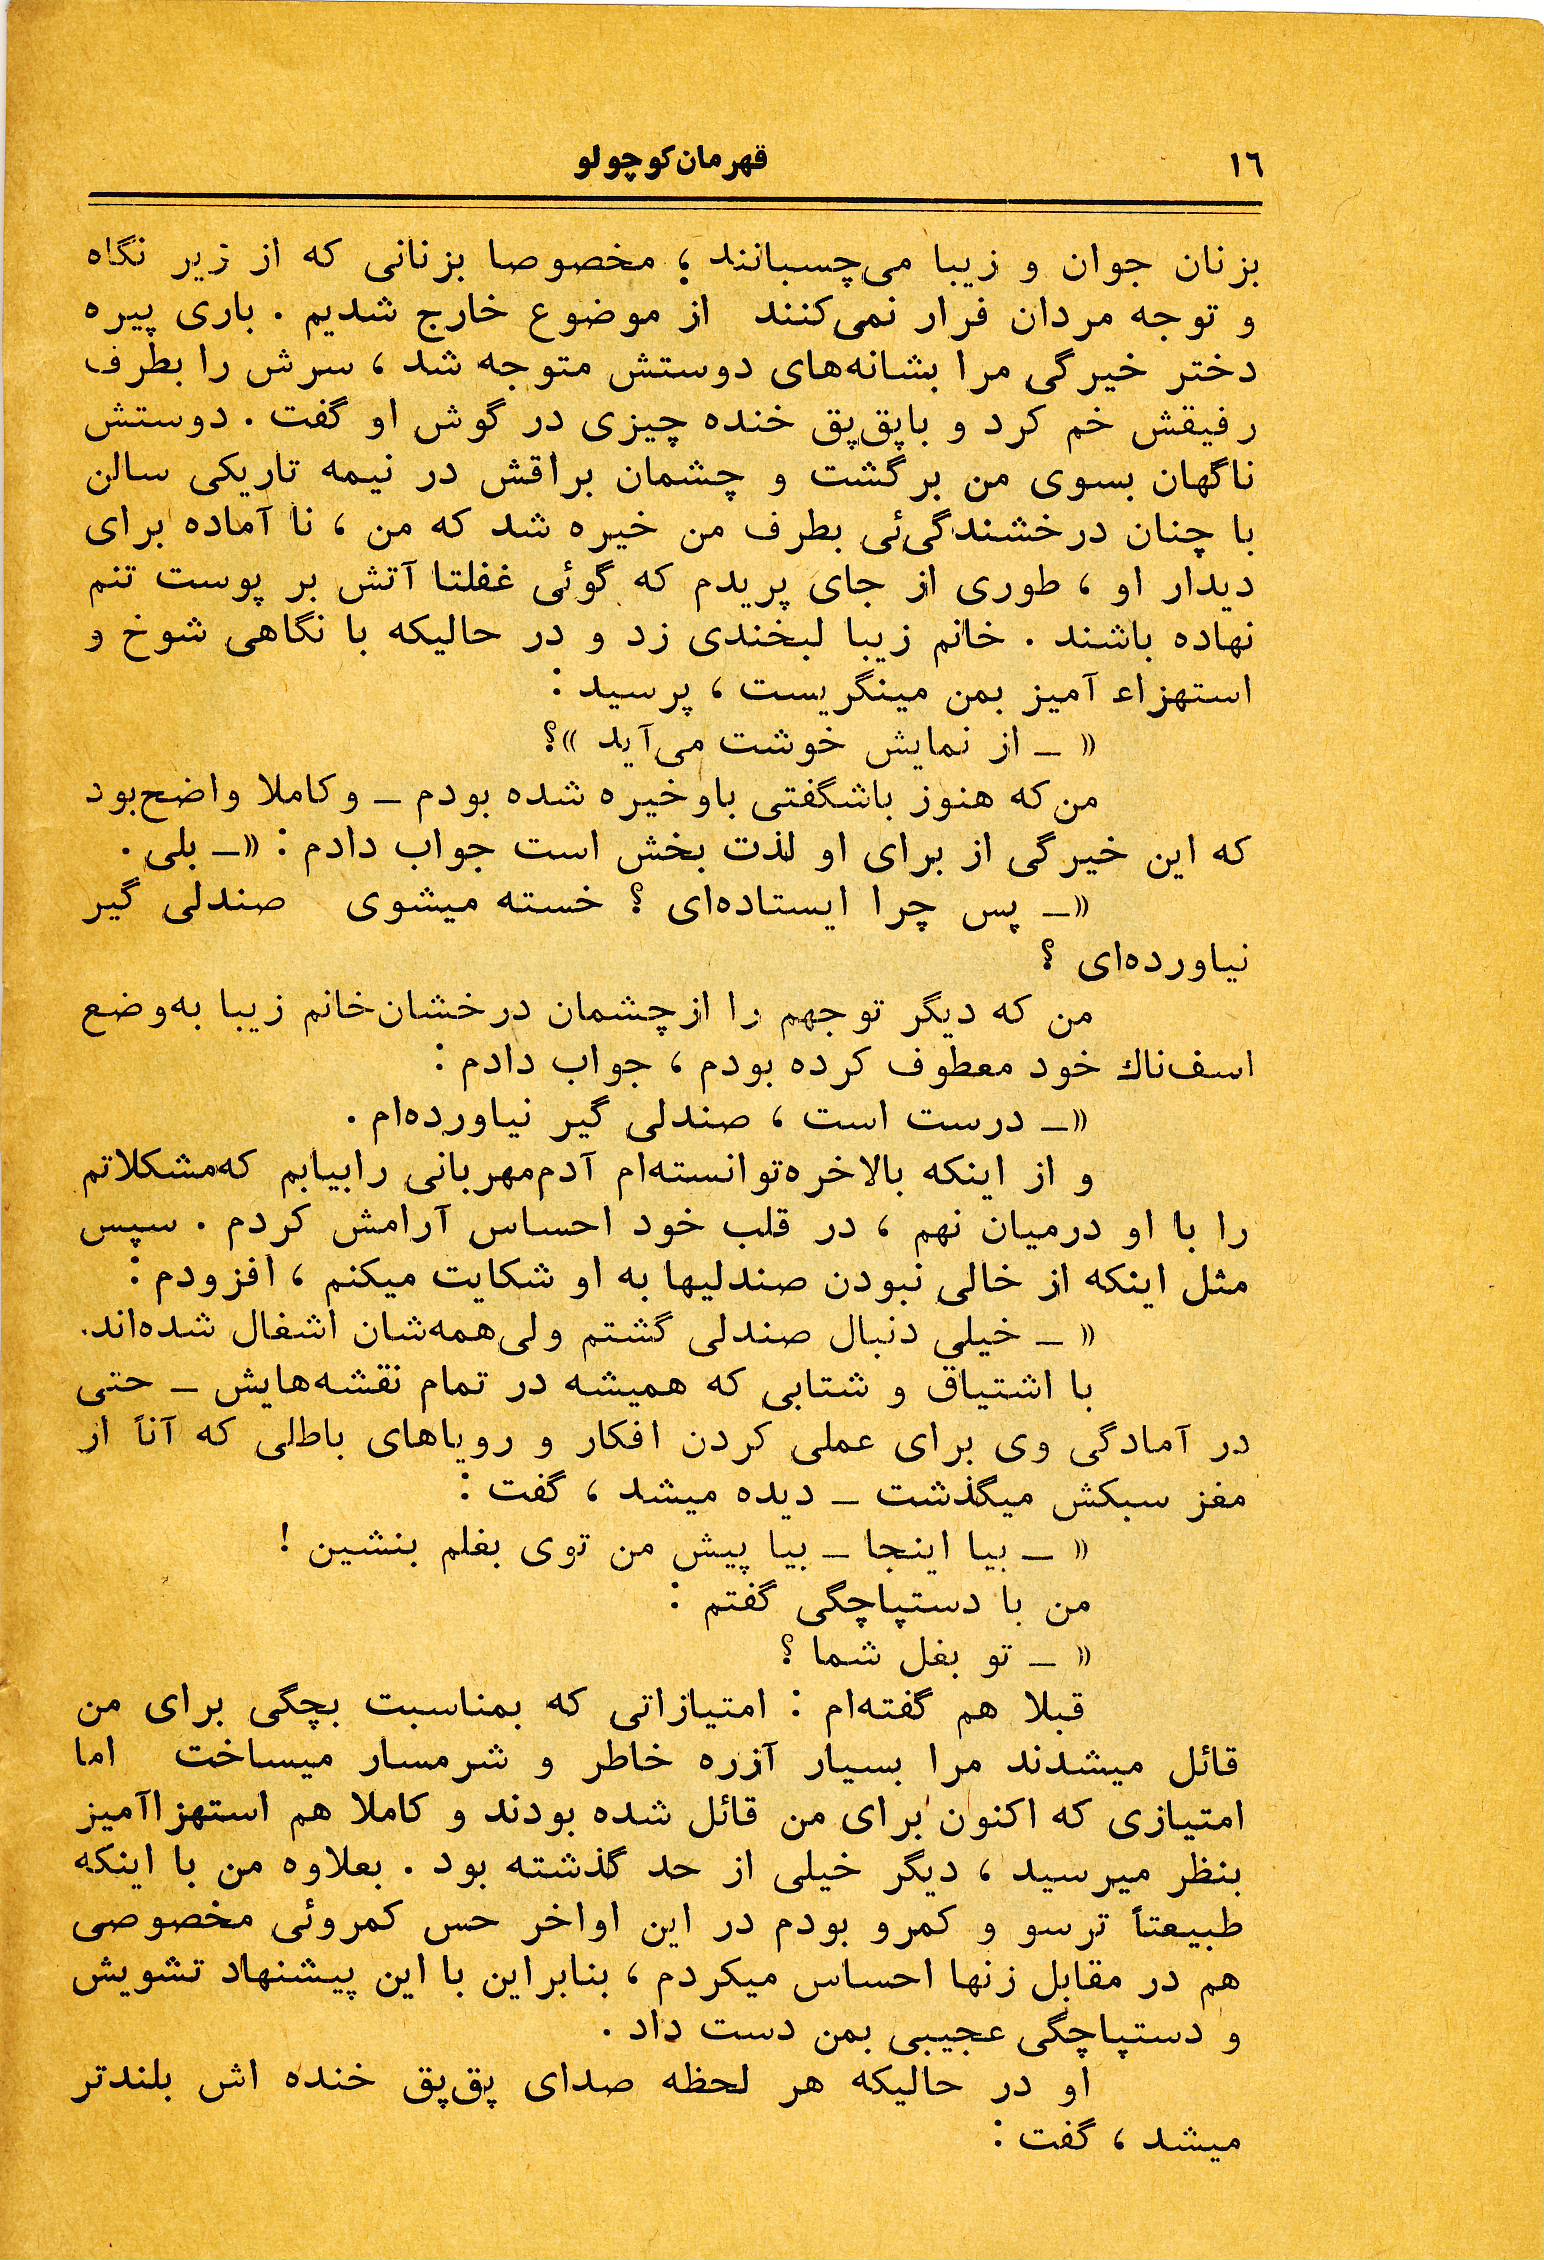 ١٦
قهرمان کوچولو
بزنان جوان و زیبا می‌چسبانند ؛ مخصوصا بزنانی که از زیر نگاه
و توجه مردان فرار نمی‌کنند از موضوع خارج شدیم . باری پیره
دختر خیرگی مرا بشانه‌های دوستش متوجه شد ، سرش را بطرف
رفیقش خم کرد و باپق‌پق خنده چیزی در گوش او گفت . دوستش
ناگهان بسوی من برگشت و چشمان براقش در نیمه تاریکی سالن
با چنان درخشندگی‌ئی بطرف من خیره شد که من ، نا آماده برای
دیدار او ، طوری از جای پریدم که گوئی غفلتا آتش بر پوست تنم
نهاده باشند . خانم زیبا لبخندی زد و در حالیکه با نگاهی شوخ و
استهزاء آمیز بمن مینگریست ، پرسید :
« ــ از نمایش خوشت می‌آید »؟
من که هنوز باشگفتی باوخیره شده بودم ــ وکاملا واضح‌بود
که این خیرگی از برای او لذت بخش است جواب دادم : «ــ بلی .
«ــ پس چرا ایستاده‌ای ؟ خسته میشوی صندلی گیر
نیاورده‌ای ؟
من که دیگر توجهم را ازچشمان درخشان‌خانم زیبا به‌وضع
اسف‌ناك خود معطوف کرده بودم ، جواب دادم :
«ــ درست است ، صندلی گیر نیاورده‌ام .
و از اینکه بالاخره‌توانسته‌ام آدم‌مهربانی رابیابم که‌مشکلاتم
را با او درمیان نهم ، در قلب خود احساس آرامش کردم . سپس
مثل اینکه از خالی نبودن صندلیها به او شکایت میکنم ، افزودم :
« ــ خیلی دنبال صندلی گشتم ولی‌همه‌شان اشغال شده‌اند.
با اشتیاق و شتابی که همیشه در تمام نقشه‌هایش ــ حتی
در آمادگی وی برای عملی کردن افکار و رویاهای باطلی که آناً از
مغز سبکش میگذشت ــ دیده میشد ، گفت :
« ــ بیا اینجا ــ بیا پیش من توی بغلم بنشین !
من با دستپاچگی گفتم :
« ــ تو بغل شما ؟
قبلا هم گفته‌ام : امتیازاتی که بمناسبت بچگی برای من
قائل میشدند مرا بسیار آزره خاطر و شرمسار میساخت اما
امتیازی که اکنون برای من قائل شده بودند و کاملا هم استهزاآمیز
بنظر میرسید ، دیگر خیلی از حد گذشته بود . بعلاوه من با اینکه
طبیعتاً ترسو و کمرو بودم در این اواخر حس کمروئی مخصوصی
هم در مقابل زنها احساس میکردم ، بنابراین با این پیشنهاد تشویش
و دستپاچگی عجیبی بمن دست داد .
او در حالیکه هر لحظه صدای پق‌پق خنده اش بلندتر
میشد ، گفت :